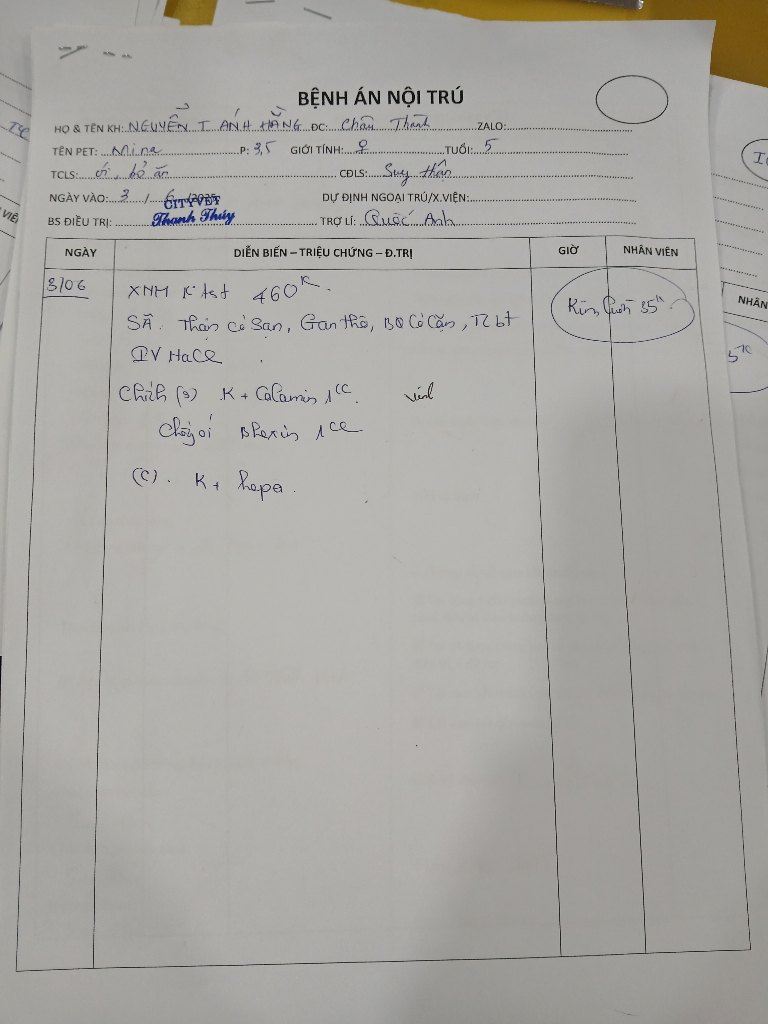 BỆNH ÁN NỘI TRÚ
HỌ & TÊN KH: NGUYỄN T. ÁNH HẰNG ĐC: Châu Thành ZALO:
TÊN PET: Mina P: 3,5 GIỚI TÍNH: ♀ TUỔI: 5
TCLS: ói, bỏ ăn CĐLS: Suy thận
NGÀY VÀO: 3 / 6 /2025 DỰ ĐỊNH NGOẠI TRÚ/X.VIỆN:
CITYVET
BS ĐIỀU TRỊ: Thanh Thúy TRỢ LÍ: Quốc Anh
NGÀY DIỄN BIẾN – TRIỆU CHỨNG – Đ.TRỊ GIỜ NHÂN VIÊN
3/06 XNM K test 460K.
SÂ. Thận có sạn, Gan thô, BQ có cặn, TC bt
IV NaCl
35K
Chích (s) K + Calamin 1cc.
Chống ói 1cc
(C). K + hepa.
NHÂN
5K